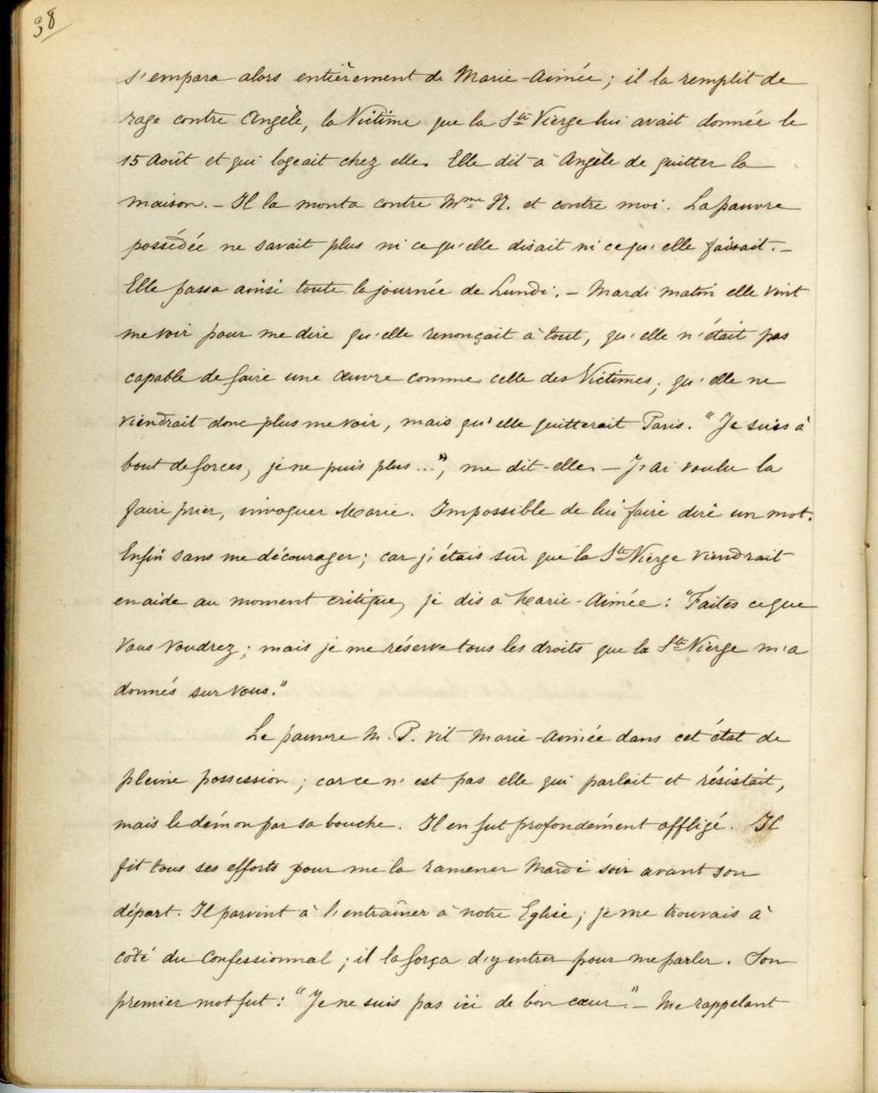 38
s'empara alors entièrement de Marie-Aimée ; il la remplit de
rage contre Angèle, la Victime que la Ste Vierge lui avait donnée le
15 Août et qui logeait chez elle. Elle dit à Angèle de quitter la
maison. — Il la monta contre Mme N. et contre moi. La pauvre
possédée ne savait plus ni ce qu'elle disait ni ce qu'elle faisait. —
Elle passa ainsi toute la journée de Lundi. — Mardi matin elle vint
me voir pour me dire qu'elle renonçait à tout, qu'elle n'était pas
capable de faire une œuvre comme celle des Victimes ; qu'elle ne
viendrait donc plus me voir, mais qu'elle quitterait Paris. "Je suis à
bout de forces, je ne puis plus ...", me dit-elle. — J'ai voulu la
faire prier, invoquer Marie. Impossible de lui faire dire un mot.
Enfin sans me décourager ; car j'étais sûr que la Ste Vierge viendrait
en aide au moment critique, je dis à Marie-Aimée : "Faites ce que
vous voudrez ; mais je me réserve tous les droits que la Ste Vierge m'a
donnés sur vous."
Le pauvre M. P. vit Marie-Aimée dans cet état de
pleine possession ; car ce n'est pas elle qui parlait et résistait,
mais le démon par sa bouche. Il en fut profondément affligé. Il
fit tous ses efforts pour me la ramener Mardi soir avant son
départ. Il parvint à l'entraîner à notre Eglise ; je me trouvais à
côté du Confessionnal ; il la força d'y entrer pour me parler. Son
premier mot fut : "Je ne suis pas ici de bon cœur". — Me rappelant